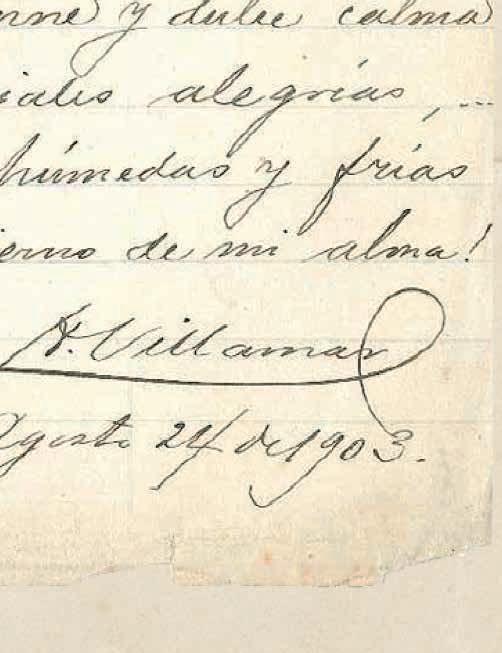 y dulce calma
alegrías,...
húmedas y frías
de mi alma!
A. Villamar
Agosto 24 de 1903.